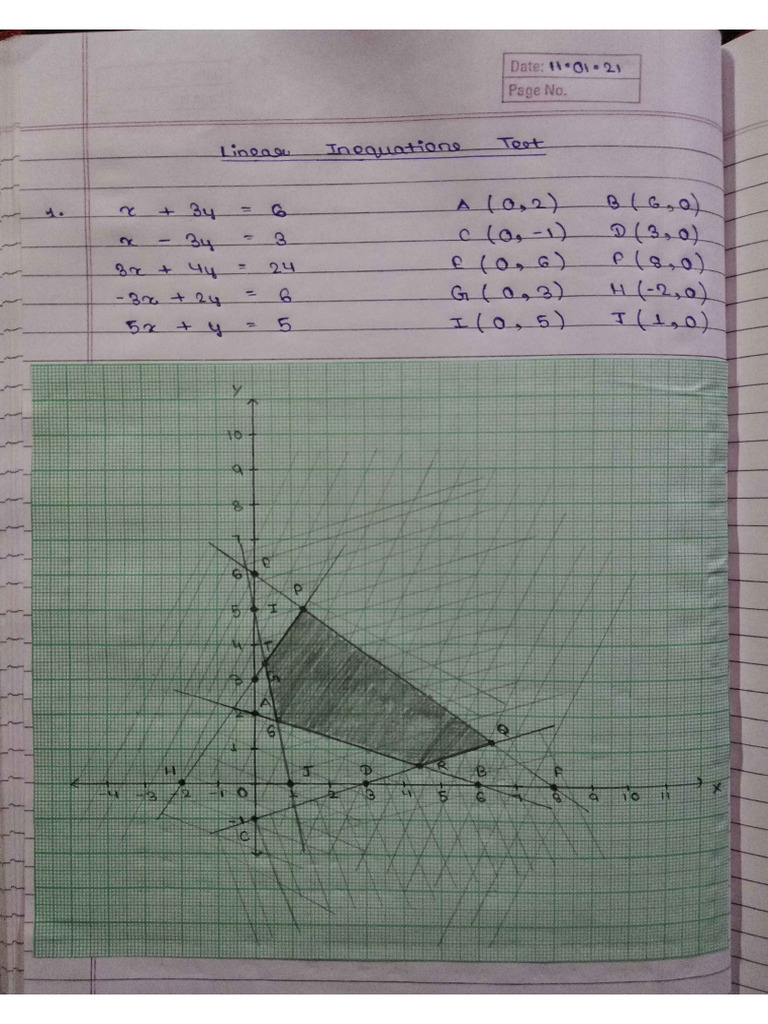 Date: 11.01.21
Page No.
Linear Inequations Test
1. x + 3y = 6 A (0, 2) B (6, 0)
x - 3y = 3 C (0, -1) D (3, 0)
3x + 4y = 24 E (0, 6) F (8, 0)
-3x + 2y = 6 G (0, 3) H (-2, 0)
5x + y = 5 I (0, 5) J (1, 0)
Y
10
9
8
7
6 E
P
5 I
4 T
3 G
A
2 S
1 Q
R
H J D B F
-4 -3 -2 -1 0 1 2 3 4 5 6 7 8 9 10 11 X
-1
C